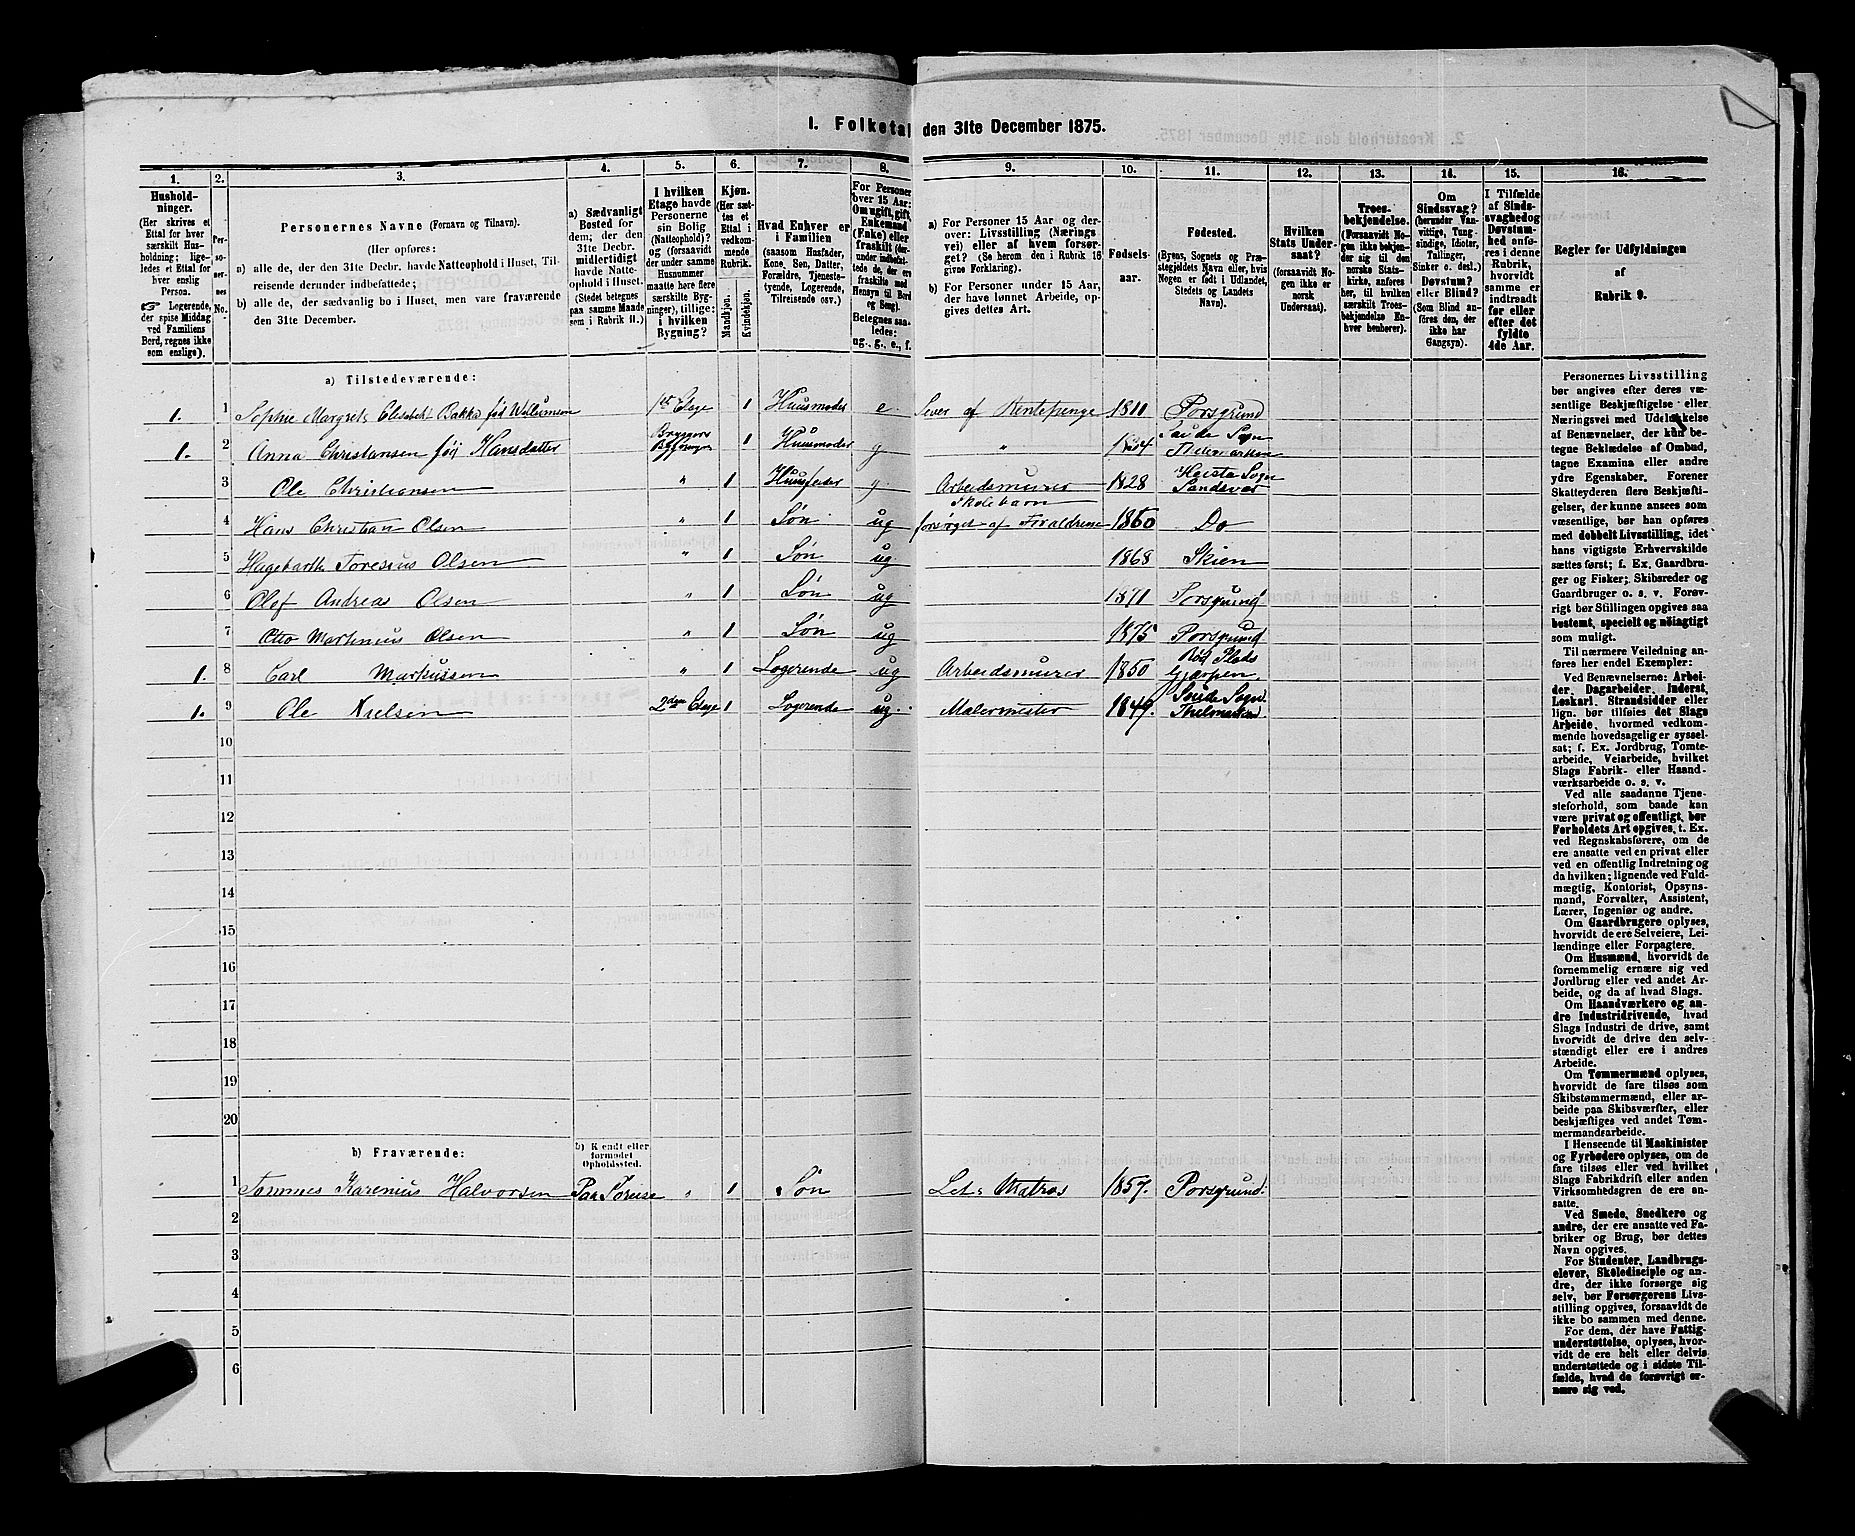 I. Folketal den 31te December 1875.
1.
2.
3.
4.
5.
6.
7.
8.
9.
10.
11.
12.
13.
14.
15.
16.
Hushold-
ninger.
(Her skrives et
Ettal for hver
særskilt Hus-
holdning; lige-
ledes et Ettal for
hver enslig
Person.
☞ Logerende,
der spise Middag
ved Familiens
Bord, regnes ikke
som enslige).
Per-
so-
ner-
nes
No.
Personernes Navne (Fornavn og Tilnavn).
(Her opføres:
a) alle de, der den 31te Decbr. havde Natteophold i Huset, Til-
reisende derunder indbefattede;
b) alle de, der sædvanlig bo i Huset, men vare fraværende
den 31te December.
a) Sædvanligt
Bosted for
dem; der den
31te Decbr.
midlertidigt
havde Natte-
ophold i Huset.
(Stedet betegnes
paa samme Maade
som i Rubrik 11.)
I hvilken
Etage havde
Personerne
sin Bolig
(Natteophold)?
og (forsaavidt
der under samme
Husnummer
maatte høre flere
særskilte Byg-
ninger), tillige:
i hvilken
Bygning?
Kjøn.
(Her sæt-
tes et
Ettal i
vedkom-
mende
Rubrik.
Mandkjøn.
Kvindekjøn.
Hvad Enhver er
i Familien
(saasom Husfader,
Kone, Søn, Datter,
Forældre, Tjeneste-
tyende, Logerende,
Tilreisende osv.)
For Personer
over 15 Aar:
Om ugift, gift,
Enkemand
(Enke) eller
fraskilt (der-
under indbefat-
tede de, der ere
fraskilte med
Hensyn til Bord
og Seng).
Betegnes saa-
ledes:
ug., g., e., f.
a) For Personer 15 Aar og der-
over: Livsstilling (Nærings
vei) eller af hvem forsør-
get? (Se herom den i Rubrik 16
givne Forklaring).
b) For Personer under 15 Aar,
der have lønnet Arbeide, op-
gives dettes Art.
Fødsels-
aar.
Fødested.
(Byens, Sognets og Præ-
stegjeldets Navn eller, hvis
Nogen er født i Udlandet,
Stedets og Landets
Navn).
Hvilken
Stats Under-
saat?
(forsaavidt No-
gen ikke er
norsk
Undersaat).
Troes-
bekjendelse.
(Forsaavidt No-
gen ikke bekjen-
der sig til den
norske Stats-
kirke, anføres
her, til hvilken
særskilt Troes-
bekjendelse En-
hver henhører).
Om
Sindssvag?
(herunder Van-
vittige, Tung-
sindige, Idioter,
Tullinger,
Sinker o. desl.)
Døvstum?
eller Blind?
(Som Blind an-
føres den, der
ikke har
Gangsyn).
I Tilfælde
af Sinds-
svaghed og
Døvstum-
hed anfø-
res i denne
Rubrik,
hvorvidt
samme er
indtraadt
før eller
efter det
fyldte
4de Aar.
Regler for Udfyldningen
af
Rubrik 9.
a) Tilstedeværende:
1. 1 Sophie Margrete Elisabeth Bakka fød Willumsen 1ste Etage 1 Huusmoder e Lever af Rentepenge 1811 Porsgrund
1. 2 Anna Christansen fød Hansdatter Bryggers Bygningen 1 Huusmoder g " 1834 Saude Sogn Thelemarken
3 Ole Christiansen " 1 Huusfader g Arbeidsmurer 1828 Hæsta Sogn Sandsvær
4 Hans Christian Olsen " 1 Søn ug Skolebarn forsørget af Forældrene 1860 Do
5 Hagebarth Toresius Olsen " 1 Søn ug 1868 Skien
6 Olaf Andreas Olsen " 1 Søn ug 1871 Porsgrund
7 Otto Martinius Olsen " 1 Søn ug 1875 Porsgrund
1. 8 Carl Markussen " 1 Logerende ug Arbeidsmurer 1850 Gjerpen
1. 9 Ole Nielsen 2den Etage 1 Logerende ug. Malermester 1849. Saude Sogn Thelmarken
10
11
12
13
14
15
16
17
18
19
20
b) Fraværende:
b) Kjendt eller
formodet
Opholdssted.
1 Tommes Karenius Halvorsen Paa " 1 Søn Let-Matros 1857. Porsgrund.
2
3
4
5
6
Personernes Livsstilling
bør angives efter deres væ-
sentlige Beskjæftigelse eller
Næringsvei med Udelukkelse
af Benævnelser, der kun be-
tegne Beklædelse af Ombud,
tagne Examina eller andre
ydre Egenskaber. Forener
Skatteyderen flere Beskjæfti-
gelser, der kunne ansees som
væsentlige, bør han opføres
med dobbelt Livsstilling, idet
hans vigtigste Erhvervskilde
sættes først; f. Ex. Gaardbru-
ger og Fisker; Skibsreder og
Gaardbruger o. s. v. Forøv-
rigt bør Stillingen opgives saa
bestemt, specielt og nøiagtigt
som muligt.
Til nærmere Veiledning an-
føres her endel Exempler:
Ved Benævnelserne: Arbei-
der, Dagarbeider, Inderst,
Løskarl, Strandsidder eller
lign. bør tilføies det Slags
Arbeide, hvormed vedkom-
mende hovedsagelig er syssel-
sat; f. Ex. Jordbrug, Tomte-
arbeide, Veiarbeide, hvilket
Slags Fabrik- eller Haand-
værksarbeide o. s. v.
Ved alle saadanne Tjene-
steforhold, som baade kan
være privat og offentligt, bør
Forholdets Art opgives, t. Ex.
ved Regnskabsførere, om de
ere ansatte ved en privat eller
ved en offentlig Indretning og
da hvilken; lignende ved Fuld-
mægtig, Kontorist, Opsyns-
mand, Forvalter, Assistent,
Lærer, Ingeniør og andre.
Om Gaardbrugere oplyses,
hvorvidt de ere Selveiere, Lei-
lændinge eller Forpagtere.
Om Husmænd, hvorvidt de
fornemmelig ernære sig ved
Jordbrug eller ved andet Ar-
beide, og da af hvad Slags.
Om Haandværkere og an-
dre Industridrivende, hvad
Slags Industri de drive, samt
hvorvidt de drive den selv-
stændigt eller ere i andres
Arbeide.
Om Tømmermænd oplyses,
hvorvidt de fare tilsøs som
Skibstømmermænd, eller ar-
beide paa Skibsværfter, eller
beskjæftiges ved andet Tøm-
mermandsarbeide.
I Henseende til Maskinister
og Fyrbødere oplyses, om de
fare tilsøs eller ved hvilket
Slags Fabrikdrift eller anden
Virksomhedsgren de ere an-
satte.
Ved Smede, Snedkere og
andre, der ere ansatte ved Fa-
briker og Brug, bør dettes
Navn opgives.
For Studenter, Landbrugs-
elever, Skoledisciple og an-
dre, der ikke forsørge sig
selv, bør Forsørgerens Livs-
stilling opgives, forsaavidt de
ikke bo sammen med denne.
For dem, der have Fattig-
understøttelse, oplyses, hvor-
vidt de ere helt eller delvis
understøttede og i sidste Til-
fælde, hvad de forøvrigt er-
nære sig ved.